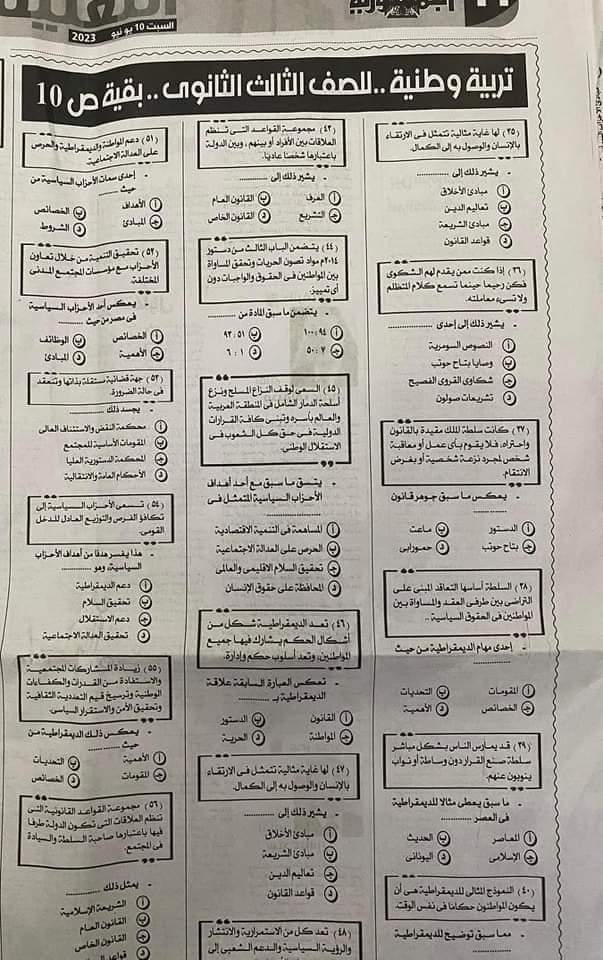 السبت 10 يونيو 2023
تربية وطنية .. للصف الثالث الثانوى .. بقية ص 10
(٣٥) لها غاية مثالية تتمثل فى الارتقاء
بالإنسان والوصول به إلى الكمال.
- يشير ذلك إلى ............
أ مبادئ الأخلاق
ب تعاليم الدين
ج مبادئ الشريعة
د قواعد القانون
(٣٦) إذا كنت ممن يقدم لهم الشكوى
فكن رحيما حينما تسمع كلام المتظلم
ولا تسىء معاملته.
- يشير ذلك إلى إحدى ............
أ النصوص السومرية
ب وصايا بتاح حوتب
ج شكاوى القروى الفصيح
د تشريعات صولون
(٣٧) كانت سلطة الملك مقيدة بالقانون
واحترامه، فلا يقوم بأى عمل أو معاقبة
شخص لمجرد نزعة شخصية أو بغرض
الانتقام.
- يعكس ما سبق جوهر قانون
............
أ الدستور ب ماعت
ج بتاح حوتب د حمورابى
(٣٨) السلطة أساسها التعاقد المبنى على
التراضى بين طرفى العقد والمساواة بين
المواطنين فى الحقوق السياسية ..
- إحدى مهام الديمقراطية من حيث
............
أ المقومات ب التحديات
ج الخصائص د الأهمية
(٣٩) قد يمارس الناس بشكل مباشر
سلطة صنع القرار دون وساطة أو نواب
ينوبون عنهم.
- ما سبق يعطى مثالا للديمقراطية
فى العصر ............
أ المعاصر ب الحديث
ج الإسلامى د اليونانى
(٤٠) النموذج المثالى للديمقراطية هى أن
يكون المواطنون حكاما فى نفس الوقت.
- مما سبق توضيح للديمقراطية
............
(٤٣) مجموعة القواعد التى تنظم
العلاقات بين الأفراد أو بينهم ، وبين الدولة
باعتبارها شخصا عاديا.
- يشير ذلك إلى ............
أ العرف ب القانون العام
ج التشريع د القانون الخاص
(٤٤) يتضمن الباب الثالث من دستور
٢٠١٤م مواد تصون الحريات وتحقق المساواة
بين المواطنين فى الحقوق والواجبات دون
أى تمييز.
- يتضمن ما سبق المادة من ............
أ ٩٤ : ١٠٠ ب ٥١ : ٩٣
ج ٧ : ٥٠ د ١ : ٦
(٤٥) السعى لوقف النزاع المسلح ونزع
أسلحة الدمار الشامل فى المنطقة العربية
والعالم بأسره وتبنى كافة القرارات
الدولية فى حق كل الشعوب فى
الاستقلال الوطنى.
- يتسق ما سبق مع أحد أهداف
الأحزاب السياسية المتمثل فى
............
أ المساهمة فى التنمية الاقتصادية
ب الحرص على العدالة الاجتماعية
ج تحقيق السلام الاقليمى والعالمى
د المحافظة على حقوق الإنسان
(٤٦) تعد الديمقراطية شكل من
أشكال الحكم يشارك فيها جميع
المواطنين، وتعد أسلوب حكم وإدارة.
- تعكس العبارة السابقة علاقة
الديمقراطية بـ ............
أ القانون ب الدستور
ج المواطنة د الحرية
(٤٧) لها غاية مثالية تتمثل فى الارتقاء
بالإنسان والوصول به إلى الكمال.
- يشير ذلك إلى ............
أ مبادئ الأخلاق
ب مبادئ الشريعة
ج تعاليم الدين
د قواعد القانون
(٤٨) تعد كل من الاستمرارية والانتشار
والرؤية السياسية والدعم الشعبى إلى
(٥١) دعم المواطنة والديمقراطية والحرص
على العدالة الاجتماعية.
- إحدى سمات الأحزاب السياسية من
حيث ............
أ الأهداف ب الخصائص
ج المبادئ د الشروط
(٥٢) تحقيق التنمية من خلال تعاون
الأحزاب مع مؤسسات المجتمع المدنى
المختلفة.
- يعكس أحد الأحزاب السياسية
فى مصر من حيث ............
أ الخصائص ب الوظائف
ج الأهمية د المبادئ
(٥٣) جهة قضائية مستقلة بذاتها وتنعقد
فى حالة الضرورة.
- يجسد ذلك ............
أ محكمة النقض والاستئناف العالى
ب المقومات الأساسية للمجتمع
ج المحكمة الدستورية العليا
د الأحكام العامة والانتقالية
(٥٤) تسعى الأحزاب السياسية إلى
تكافؤ الفرص والتوزيع العادل للدخل
القومى.
- هذا يفسر هدفا من أهداف الأحزاب
السياسية، وهو ............
أ دعم الديمقراطية
ب تحقيق السلام
ج دعم الاستقلال
د تحقيق العدالة الاجتماعية
(٥٥) زيادة المشاركات المجتمعية
والاستفادة من القدرات والكفاءات
الوطنية وترسيخ قيم التعددية الثقافية
وتحقيق الأمن والاستقرار السياسى.
- يعكس ذلك الديمقراطية من
حيث ............
أ الأهمية ب التحديات
ج المقومات د الخصائص
(٥٦) مجموعة القواعد القانونية التى
تنظم العلاقات التى تكون الدولة طرفا
فيها باعتبارها صاحبة السلطة والسيادة
فى المجتمع.
- يمثل ذلك ............
أ الشريعة الإسلامية
ب القانون العام
ج القانون الخاص
د قواعد